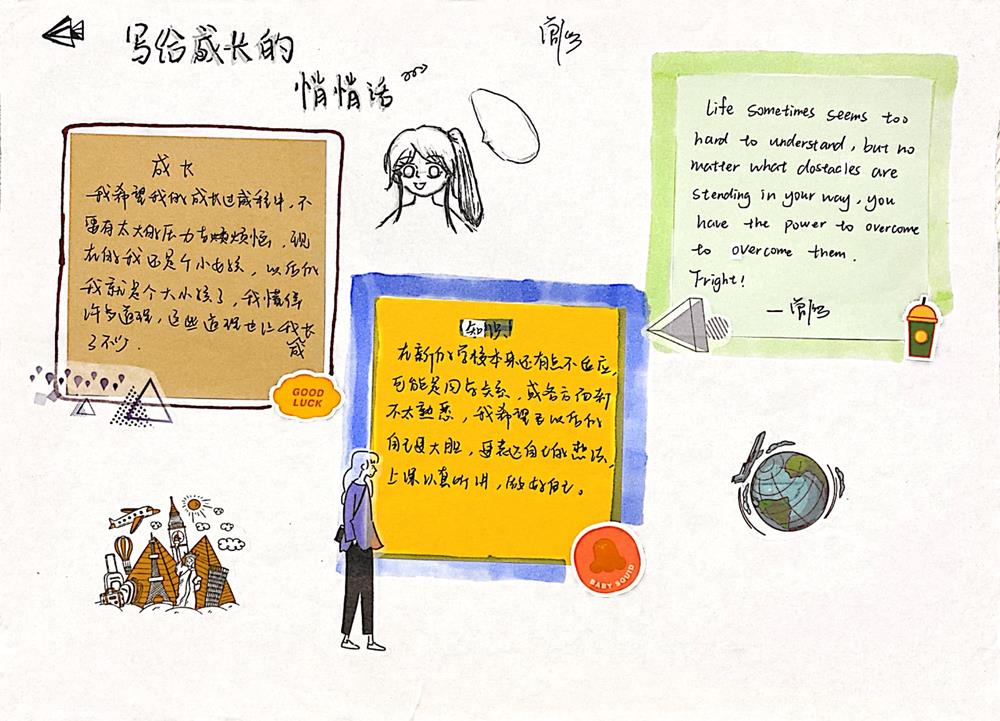 写给成长的
悄悄话
成长
我希望我的成长过程中，不
要有太大的压力与烦恼，现
在的我还是个小女孩，以后的
我就是个大小孩了，我懂得
许多道理，这些道理也让我长
成
了不少.
GOOD
LUCK
知识
在新的学校本来还有点不适应,
可能是同学关系，或各方面都
不太熟悉，我希望以后的
自己更大胆，要表达自己的想法,
上课认真听讲，做好自己。
BABY SQUID
Life sometimes seems too
hard to understand, but no
matter what dostacles are
stending in your way, you
have the power to overcome
to overcome them.
Fright!